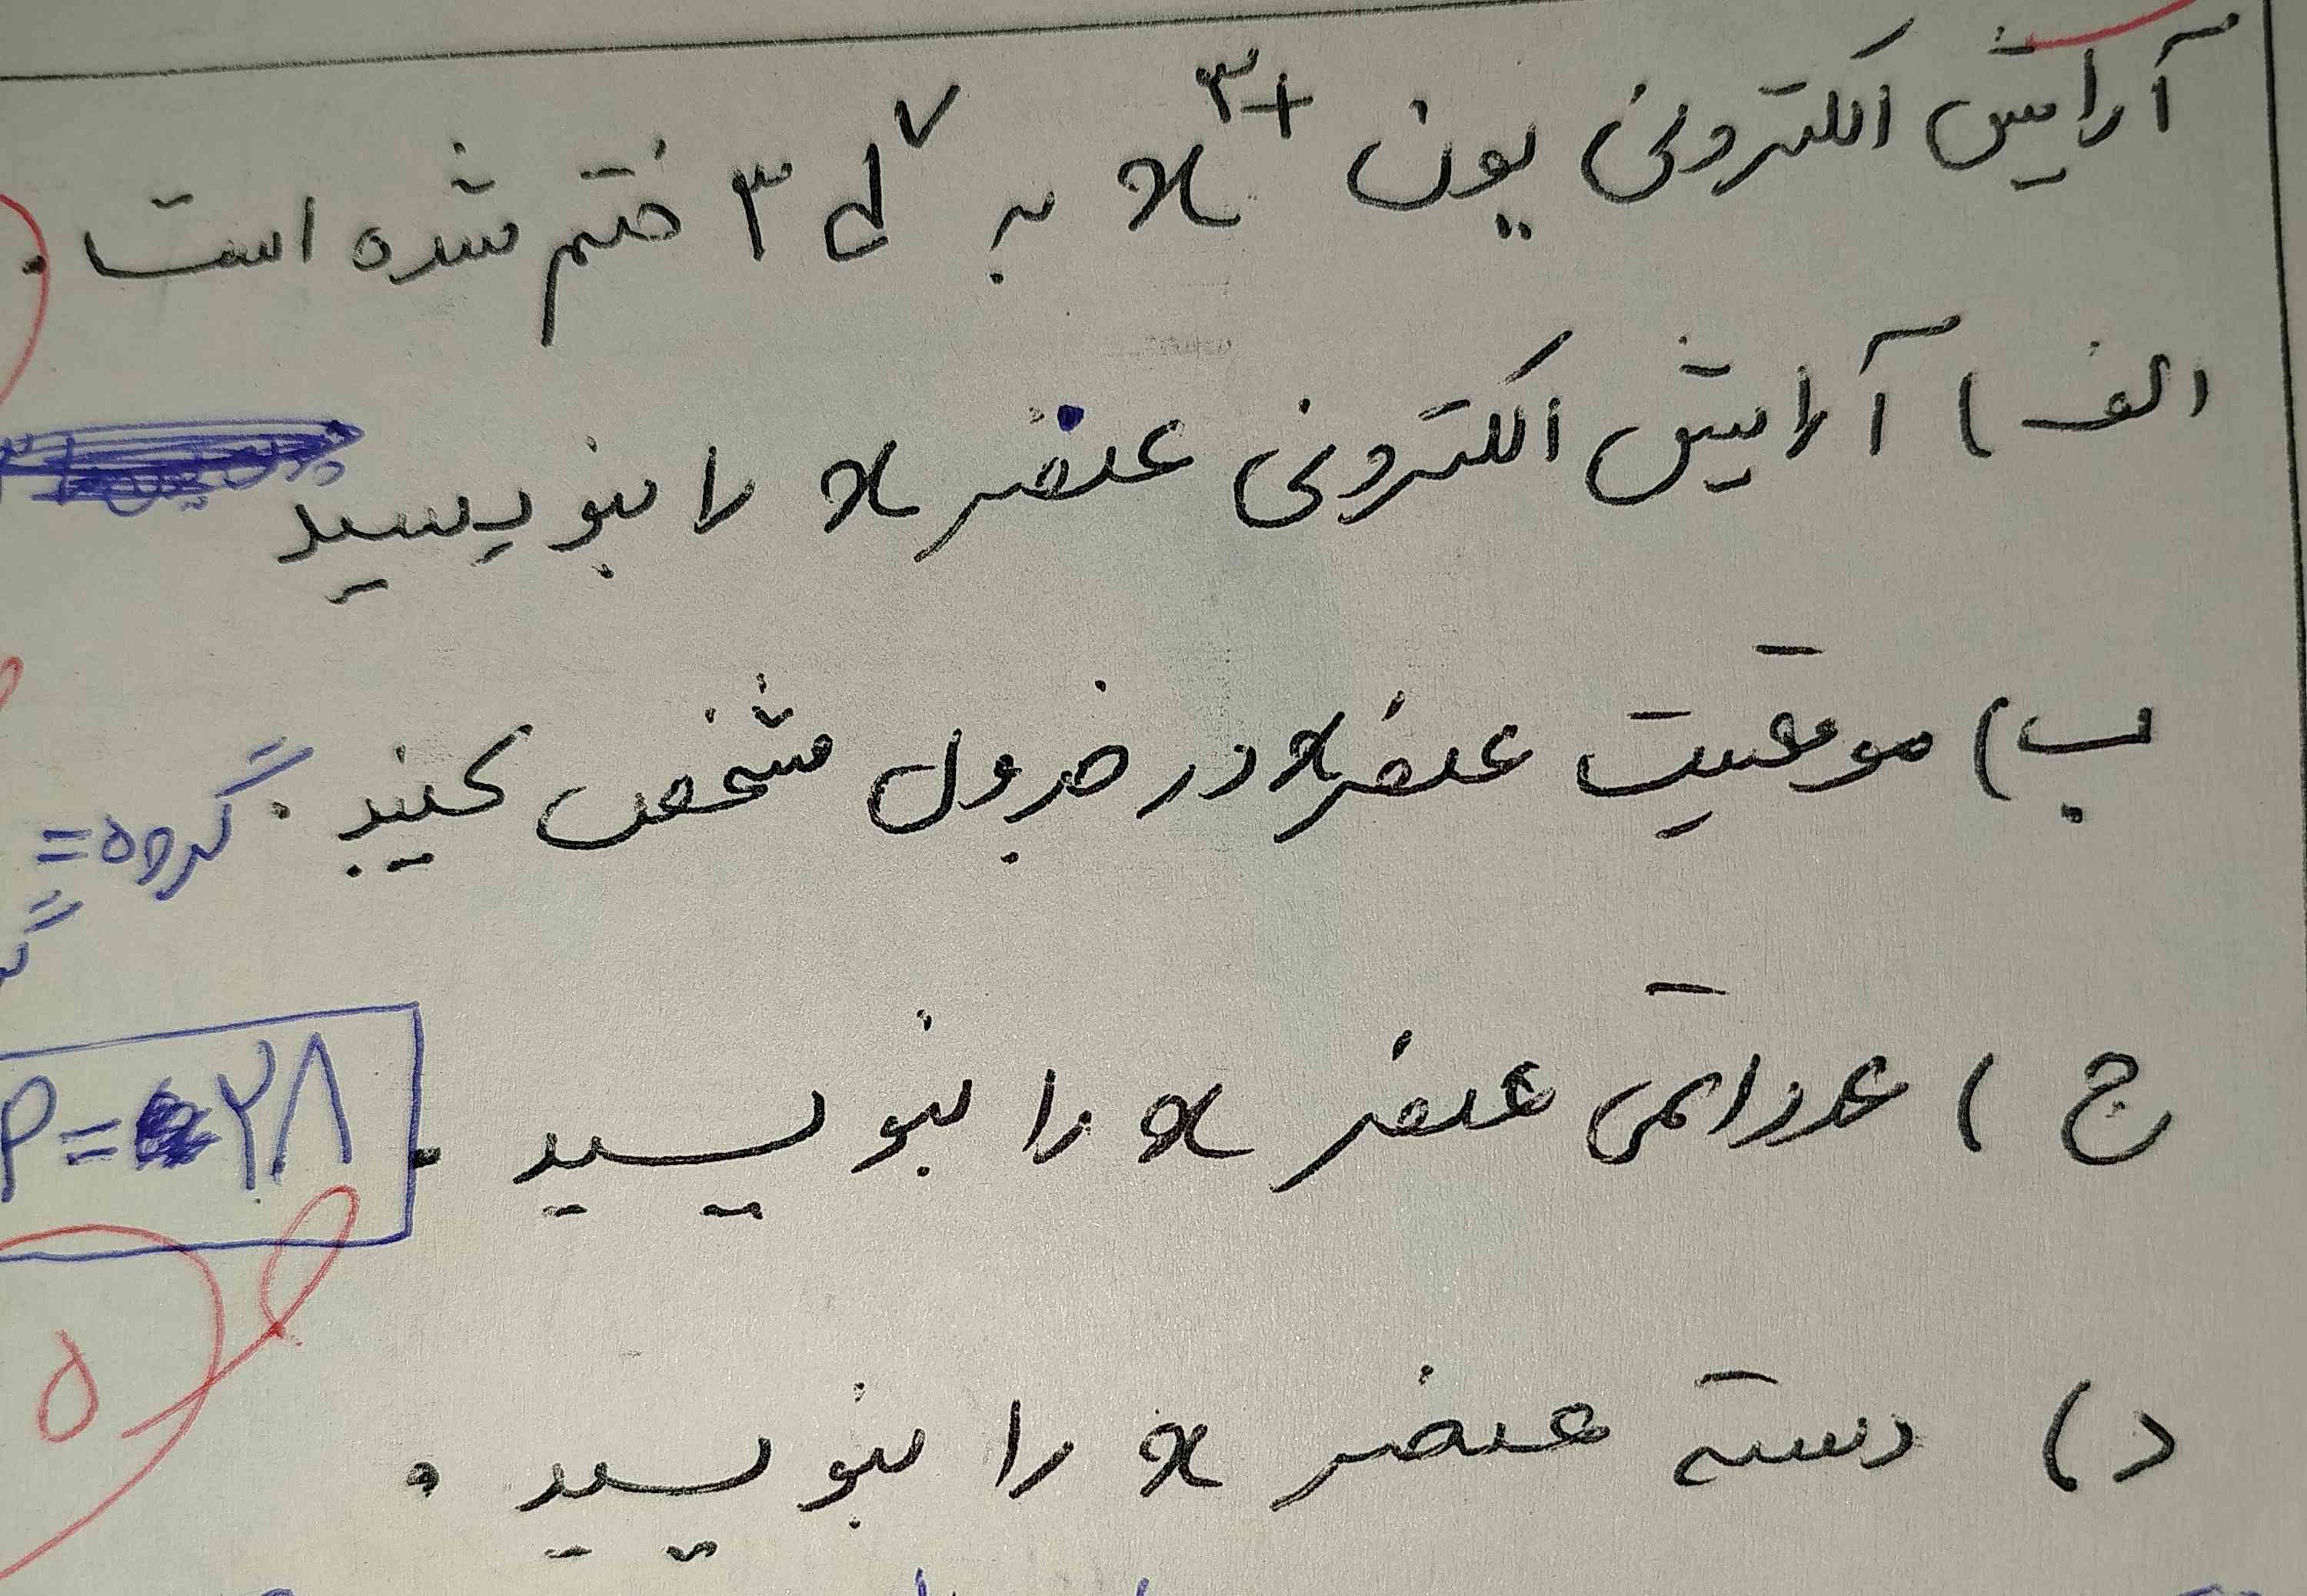 آرایش الکترونی یون x³⁺ به ۳d⁷ ختم شده است.
الف) آرایش الکترونی عنصر x را بنویسید
ب) موقعیت عنصر x در جدول مشخص کنید.
گروه =
ج) عدد اتمی عنصر x را بنویسید.
P = ۲۸
۵
د) دسته عنصر x را بنویسید.